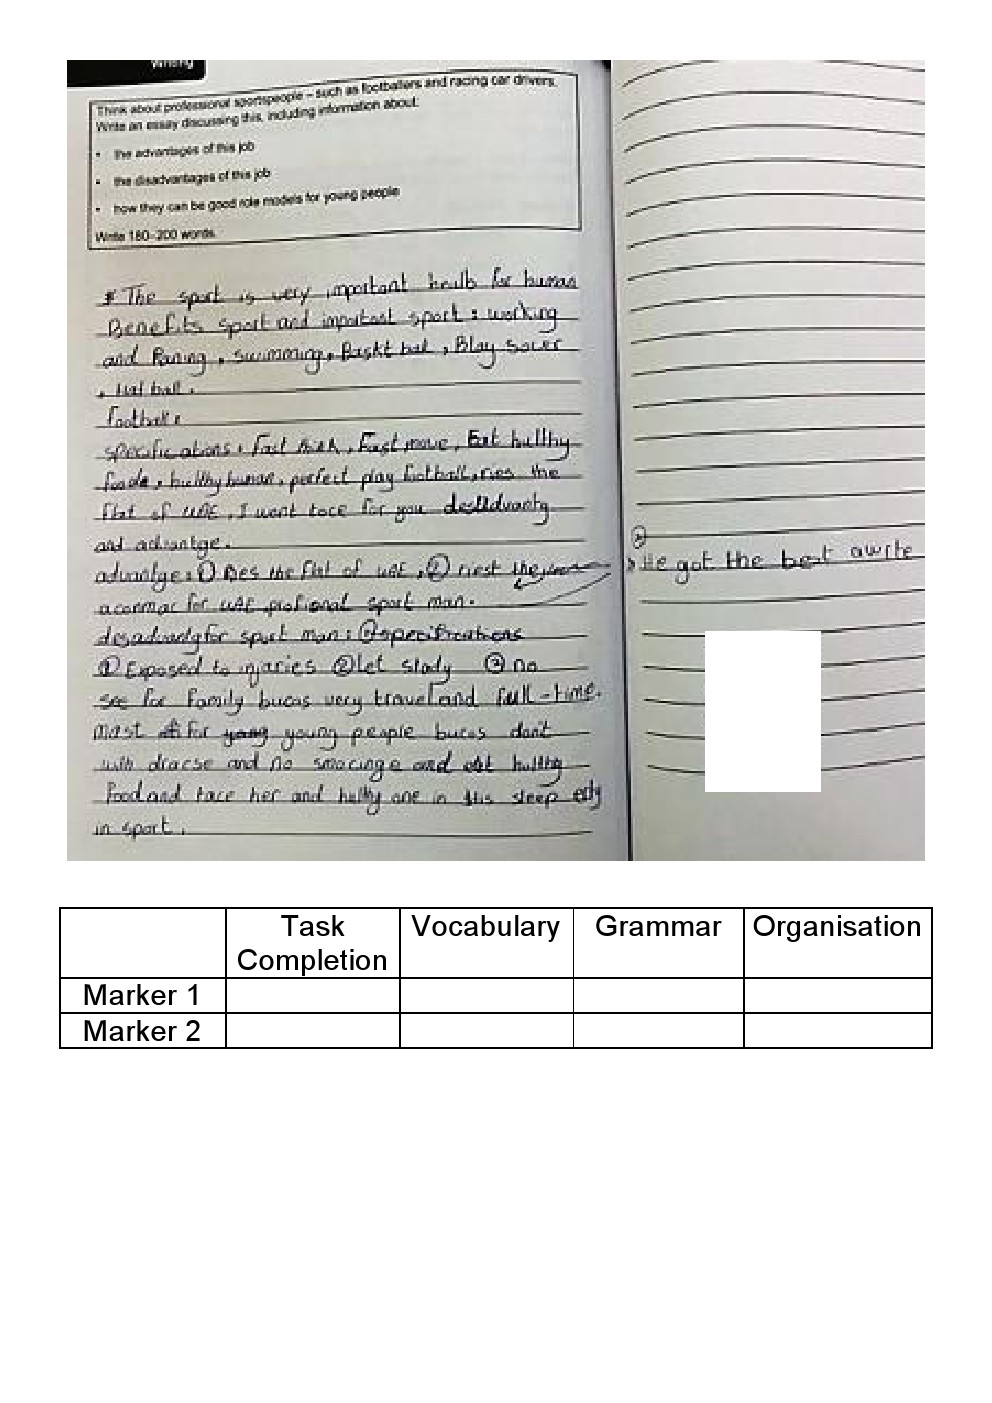 Writing
Think about professional sportspeople – such as footballers and racing car drivers.
Write an essay discussing this, including information about:
• the advantages of this job
• the disadvantages of this job
• how they can be good role models for young people
Write 180–200 words.
The sport is very important for human
Benefits sport and important sport : working
and , swimming, Baskt bal , Blay
football :
specifications : Fast , Fast move , Eat hullthy
foode , hullhy human , perfect play football , ries the
flat of UAE , I went for you
and advantge .
advantge : ① the flat of UAE , ②
for UAE sport man .
for sport man : specifications
① Exposed to injaries ② let study ③ no
see for family bucas very travel and full - time .
most for young people bucas don't
with and no and eat hullthy
food and tace her and one in this sleep
in sport .
②
He got the best awrte
Task
Completion
Vocabulary
Grammar
Organisation
Marker 1
Marker 2